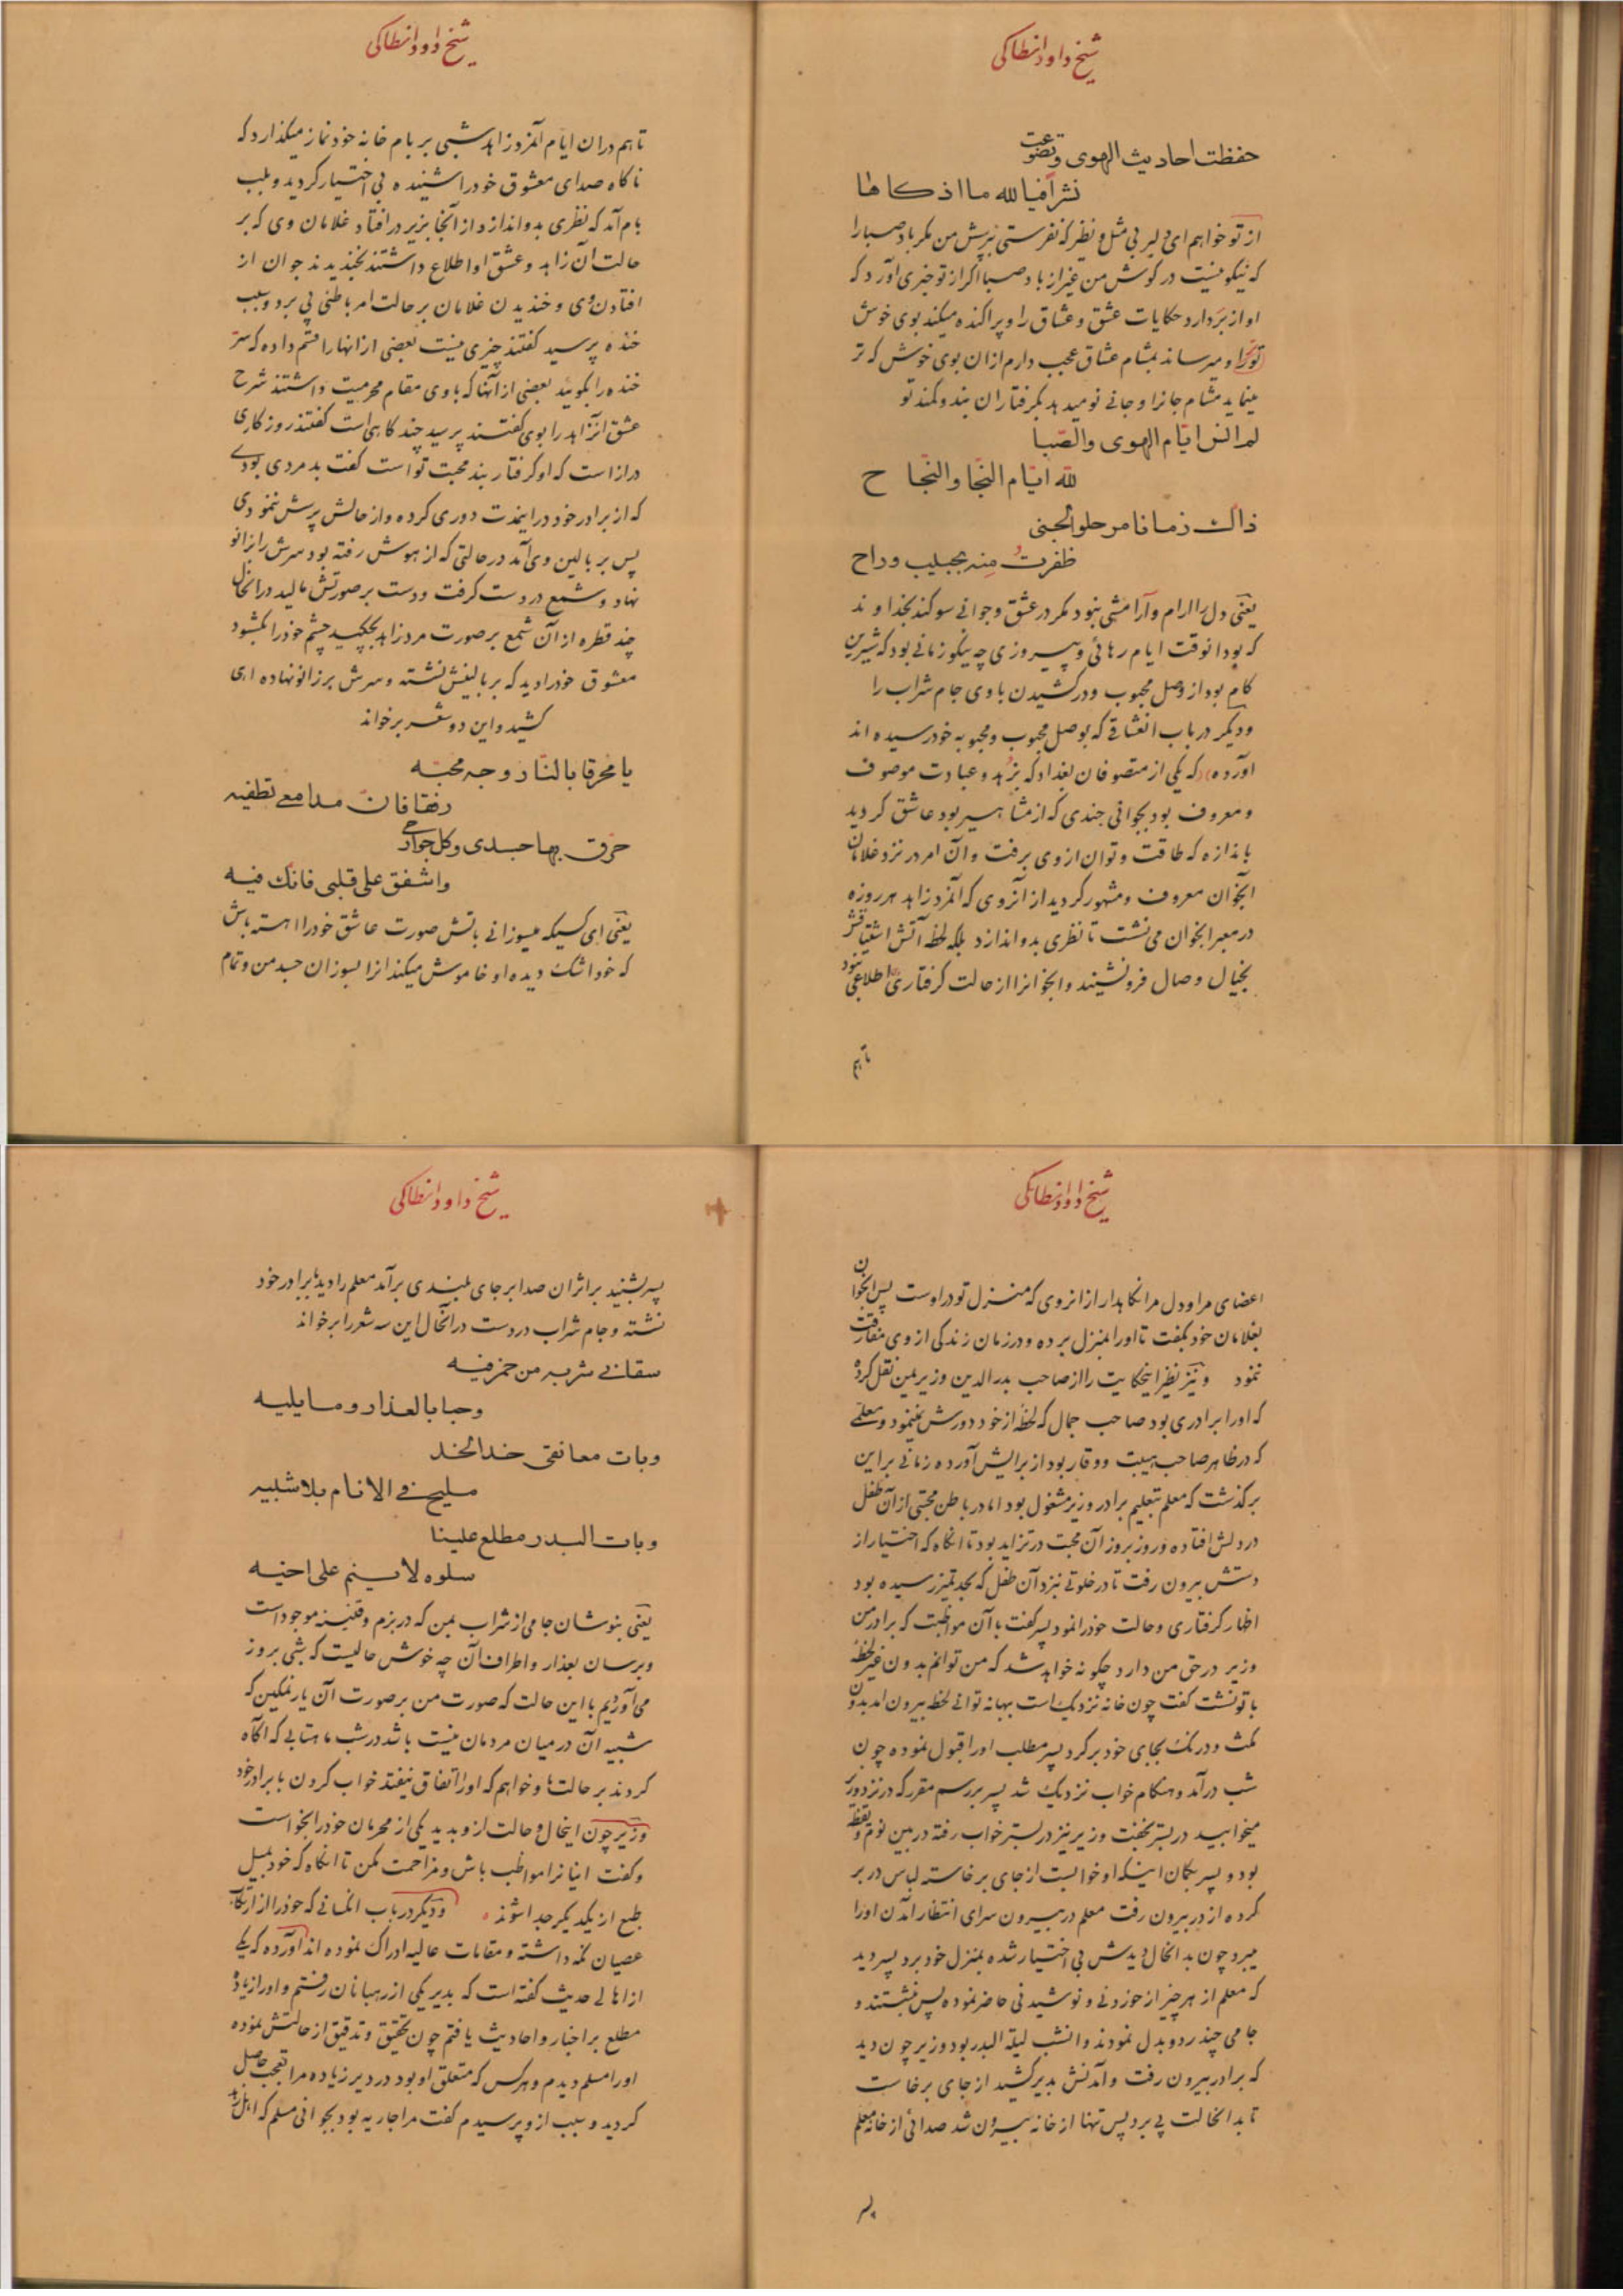 شیخ داود انطاکی
حفظت احادیث الهوی وتضوعت
نشرا فیا لله ما اذکاها
از تو خواهم ای دلبر بی مثل و نظیر که نفرستی بپرسش من مگر باد صبا را
که نیکو نیست در گوش من غیر از باد صبا اگر از تو خبری آورد که
او از بر دارد حکایات عشق و عشاق را و پراکنده میکند بوی خوش
تو را و میرساند بمشام عشاق عجب دارم ازان بوی خوش که تر
مینماید مشام جانرا و جانی نو میدهد بگرفتاران بند و کمند تو
لم انس ایّام الهوی والصّبا
لله ایّام النّجا والنّجاح
ذاک زمانا مر حلو الجنی
ظفرت منه بحبیب وراح
یعنی دل را ارام و آرامشی نبود مگر در عشق و جوانی سوگند بخداوند
که بود انوقت ایام رهائی و پیروزی چه نیکو زمانی بود که شیرین
کام بود از وصل محبوب و در کشیدن با وی جام شراب را
و دیگر در باب انعشاقی که بوصل محبوب و محبوبه خود رسیده اند
آورده که یکی از متصوفان بغداد که بزهد و عبادت موصوف
و معروف بود بجوانی جندی که از مشاهیر بود عاشق گردید
باندازه که طاقت و توان از وی برفت و آن امر در نزد غلامان
آنجوان معروف و مشهور گردید از آنروی که آنمرد زاهد هر روزه
در معبر انجوان می نشست تا نظری بدو اندازد بلکه لحظه آتش اشتیاقش
بخیال وصال فرو نشیند و انجوانرا از حالت گرفتاری اطلاعی نبود
تا هم
شیخ داود انطاکی
تا هم دران ایام آنمرد زاهد شبی بر بام خانه خود نماز میگذارد که
ناگاه صدای معشوق خود را شنیده بی اختیار گردید و بلب
بام آمد که نظری بدو اندازد از آنجا بزیر در افتاد غلامان وی که بر
حالت آن زاهد و عشق او اطلاع داشتند بخندیدند جوان از
افتادن وی و خندیدن غلامان بر حالت امر باطنی پی برد و سبب
خنده پرسید گفتند چیزی نیست بعضی از انها را قسم داده که سرّ
خنده را بگوئید بعضی از آنها که با وی مقام محرمیت داشتند شرح
عشق انزاهد را بوی گفتند پرسید چند گاهی است گفتند روزگاری
دراز است که او گرفتار بند محبت تو است گفت بد مردی بودی
که از برادر خود در اینمدت دوری کرده و از حالش پرسش ننمودی
پس بر بالین وی آمد در حالتی که از هوش رفته بود سرش را بزانو
نهاد و شمع در دست گرفت و دست بر صورتش مالید در انحال
چند قطره از آن شمع بر صورت مرد زاهد بچکید چشم خود را بگشود
معشوق خود را دید که بر بالینش نشسته و سرش بر زانو نهاده اهی
کشید و این دو شعر برخواند
یا محرقا بالنّار وجه محبّه
رفقا فانّ مدامعی تطفیه
حرّق بها جسدی وکل جوارحی
واشفق علی قلبی فانّک فیه
یعنی ای کسیکه میسوزانی باتش صورت عاشق خود را اهسته باش
که خود اشک دیده او خاموش میکند انرا بسوزان جسد من و تمام
شیخ داود انطاکی
اعضای مرا و دل مرا نگاهدار از انروی که منزل تو در اوست پس انجوان
بغلامان خود بگفت تا او را بمنزل برده و در زمان زندگی از وی مفارقت
ننمود و نیز نظیر اینحکایت را از صاحب بدر الدین وزیر یمن نقل کرده
که او را برادری بود صاحب جمال که لحظه از خود دورش نمینمود و معلمی
که در ظاهر صاحب هیبت و وقار بود از برایش آورده زمانی بر این
برگذشت که معلم بتعلیم برادر وزیر مشغول بود اما در باطن محبتی از آن طفل
در دلش افتاده و روز بروز آن محبت در تزاید بود تا انگاه که اختیار از
دستش بیرون رفت تا در خلوتی نزد آن طفل که بحد تمیز رسیده بود
اظهار گرفتاری و حالت خود را نمود پسر گفت با آن مواظبت که برادر من
وزیر در حق من دارد چگونه خواهد شد که من توانم بدون غیر لحظه
با تو نشست گفت چون خانه نزدیک است ببهانه توانی لحظه بیرون امد بدون
مکث و درنگ بجای خود برگرد پسر مطلب او را قبول نموده چون
شب درآمد و هنگام خواب نزدیک شد پسر بر رسم مقرر که در نزد وزیر
میخوابید در بستر بخفت وزیر نیز در بستر خواب رفته در بین نوم و یقظه
بود و پسر بگمان اینکه او خوابست از جای برخاسته لباس در بر
کرده از در بیرون رفت معلم در بیرون سرای انتظار آمدن او را
میبرد چون بدانحال دیدش بی اختیار شده بمنزل خود برد پسر دید
که معلم از هر چیز از خوردنی و نوشیدنی حاضر نموده پس بنشستند و
جامی چند رد و بدل نمودند و انشب لیلة البدر بود وزیر چون دید
که برادر بیرون رفت و آمدنش بدیر کشید از جای برخاست
تا بدانحالت پی برد پس تنها از خانه بیرون شد صدائی از خانه معلم
پسر
شیخ داود انطاکی
پسر بشنید بر اثر ان صدا بر جای بلندی برآمد معلم را دید با برادر خود
نشسته و جام شراب در دست در انحال این سه شعر را برخواند
سقانی شربه من خمر فیه
وحیا بالعذار وما یلیه
وبات معانقی خدا لخد
ملیح فی الانام بلا شبیه
وبات البدر مطلع علینا
سلوه لا ینم علی اخیه
یعنی بنوشان جامی از شراب بمن که در بزم و قنینه موجود است
و برسان بعذار و اطراف آن چه خوش حالیست که شبی بروز
می آوردیم با این حالت که صورت من بر صورت آن یار نمکین که
شبیه آن در میان مردمان نیست باشد در شب ماهتابی که اگاه
گردند بر حالتها و خواهم که او را اتفاق نیفتد خواب کردن با برادر خود
وزیر چون اینحال و حالت از او بدید یکی از محرمان خود را بخواست
و گفت اینانرا مواظب باش و مزاحمت مکن تا انگاه که خود بمیل
طبع از یکدیگر جدا شوند و دیگر در باب انکسانی که خود را از ارتکاب
عصیان نگه داشته و مقامات عالیه ادراک نموده اند آورده که یکی
از اهالی حدیث گفته است که بدیر یکی از رهبانان رفتم و او را زیاده
مطلع بر اخبار و احادیث یافتم چون تحقیق و تدقیق از حالتش نموده
او را مسلم دیدم و هر کس که متعلق او بود در دیر زیاده مرا تعجب حاصل
گردید و سبب از او پرسیدم گفت مرا جاریه بود بجوانی مسلم که اهل زهد